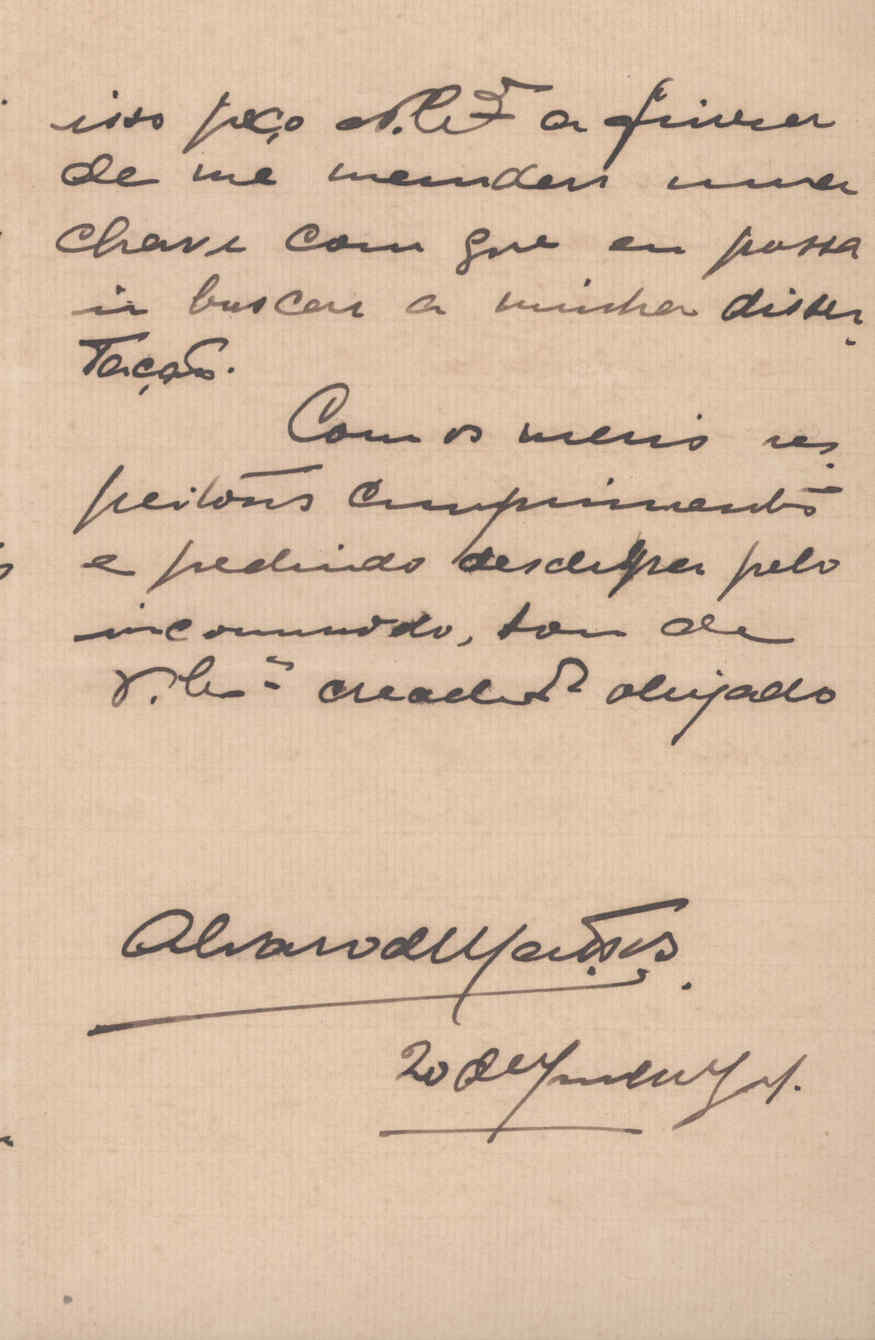 isso peço a V. Ex.ª a fineza
de me mandar uma
chave com que eu possa
ir buscar a minha disser-
tação.
Com os mais res-
peitosos cumprimentos
e pedindo desculpa pelo
incommodo, sou de
V. Ex.ª creado obrigado
Alvaro de Mattos.
20 de